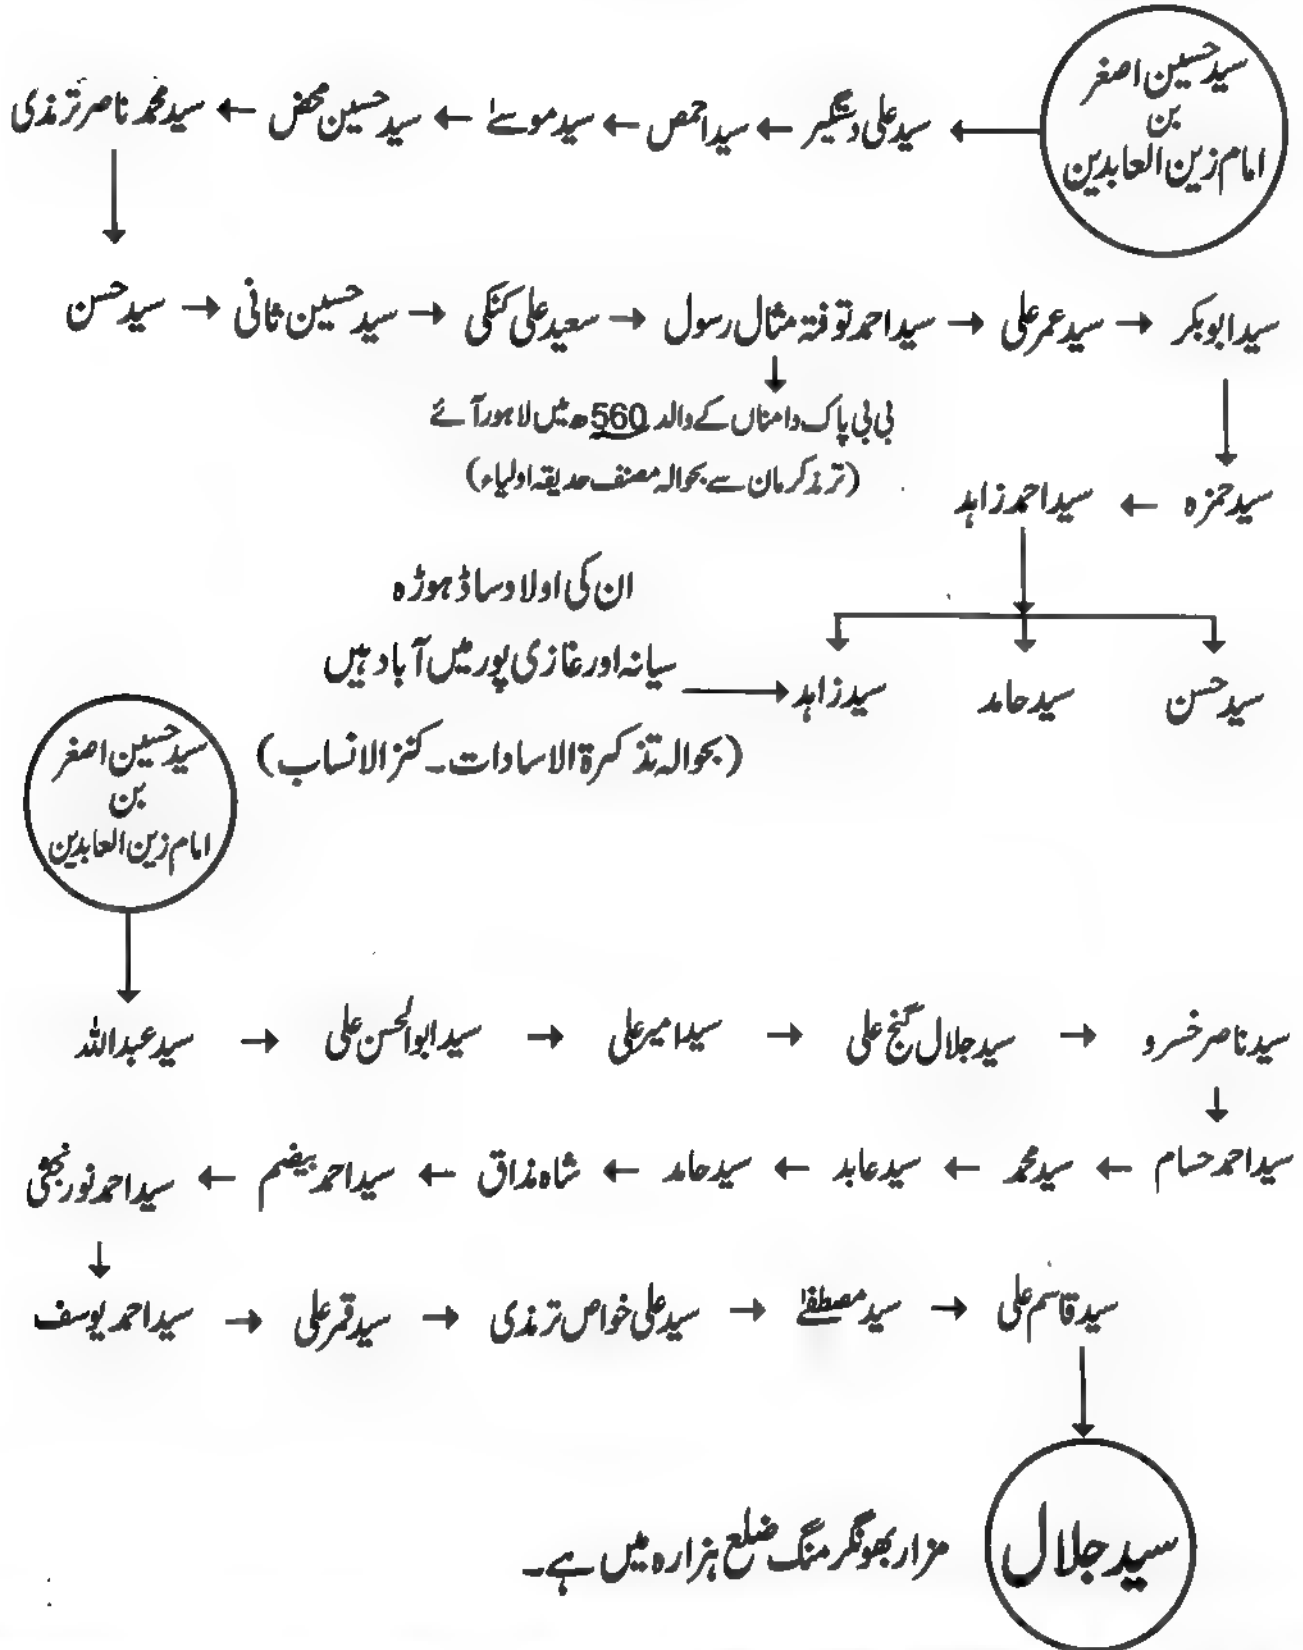 سید حسین اصغر
بن
امام زین العابدین
سید علی دستگیر ← سید احمص ← سید موسےٰ ← سید حسین محض ← سید محمد ناصر ترمذی
سید ابوبکر ← سید عمر علی ← سید احمد توفتہ مثال رسول ← سعید علی کنکی ← سید حسین ثانی ← سید حسن
بی بی پاک دامناں کے والد 560ھ میں لاہور آئے
(ترمذ کرمان سے بحوالہ مصنف حدیقہ اولیاء)
سید حمزہ ← سید احمد زاہد
ان کی اولاد ساڈھوڑہ
سیانہ اور غازی پور میں آباد ہیں
سید حسن سید حامد سید زاہد
(بحوالہ تذکرۃ الاسادات۔ کنز الانساب)
سید حسین اصغر
بن
امام زین العابدین
سید ناصر خسرو ← سید جلال گنج علی ← سید امیر علی ← سید ابوالحسن علی ← سید عبداللہ
سید احمد حسام ← سید محمد ← سید عابد ← سید حامد ← شاہ مذاق ← سید احمد بیضم ← سید احمد نور نجفی
سید قاسم علی ← سید مصطفےٰ ← سید علی خواص ترمذی ← سید قمر علی ← سید احمد یوسف
سید جلال
مزار بھونگر منگ ضلع ہزارہ میں ہے۔